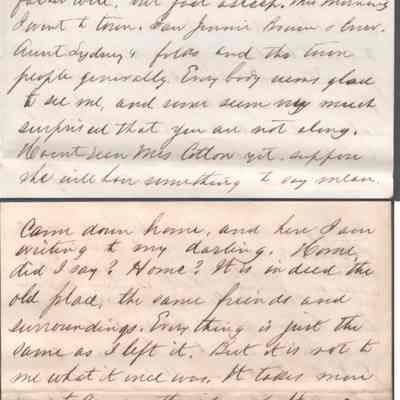 fast asleep. This morning
I went to town. Saw Jennie Brown &
Aunt Sydney's folks and the town
people generally. Every body seems glad
to see me, and some seem very much
surprised that you are not along.
Havent seen Mrs Cotton yet. suppose
she will have something to say mean.
Came down home, and here I am
writing to my darling. Home,
did I say? Home? It is indeed the
old place, the same friends and
surroundings. Everything is just the
same as I left it. But it is not to
me what it once was. It takes more